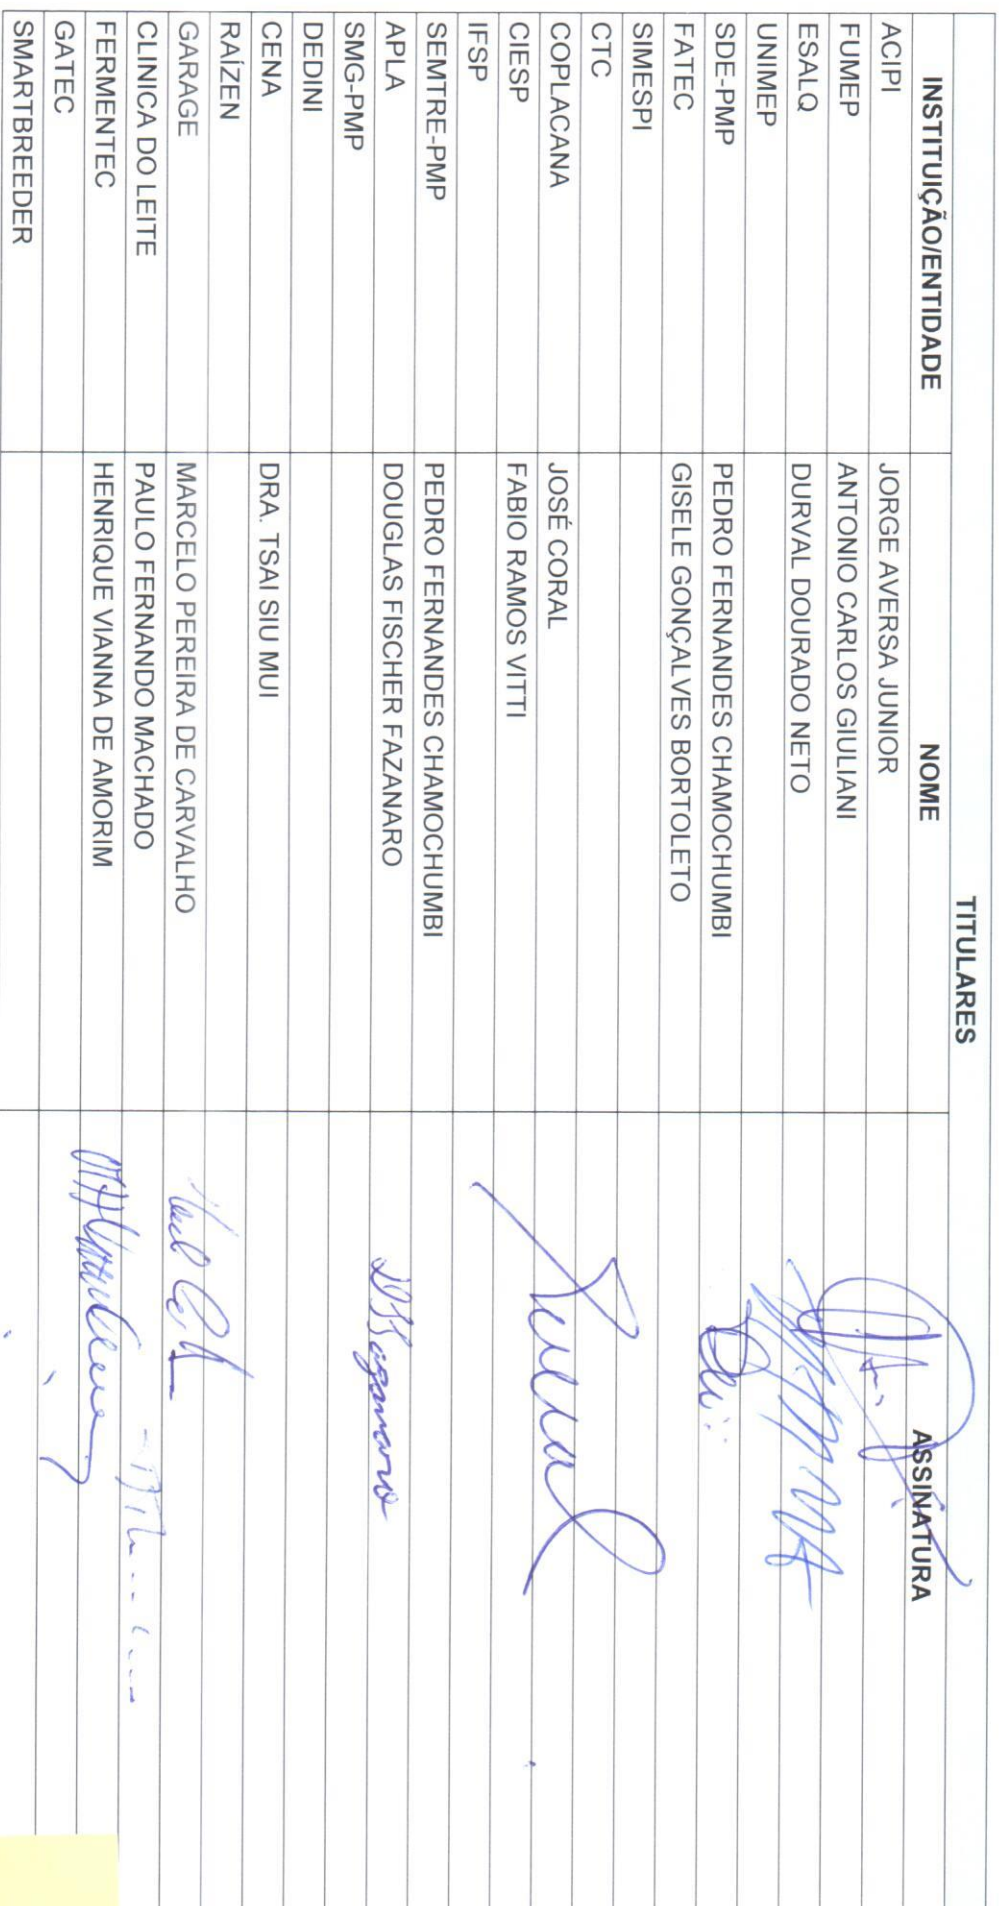 TITULARES
INSTITUIÇÃO/ENTIDADE NOME ASSINATURA
ACIPI JORGE AVERSA JUNIOR
FUMEP ANTONIO CARLOS GIULIANI
ESALQ DURVAL DOURADO NETO
UNIMEP
SDE-PMP PEDRO FERNANDES CHAMOCHUMBI
FATEC GISELE GONÇALVES BORTOLETO
SIMESPI
CTC
COPLACANA JOSÉ CORAL
CIESP FABIO RAMOS VITTI
IFSP
SEMTRE-PMP PEDRO FERNANDES CHAMOCHUMBI
APLA DOUGLAS FISCHER FAZANARO
SMG-PMP
DEDINI
CENA DRA. TSAI SIU MUI
RAÍZEN
GARAGE MARCELO PEREIRA DE CARVALHO
CLINICA DO LEITE PAULO FERNANDO MACHADO
FERMENTEC HENRIQUE VIANNA DE AMORIM
GATEC
SMARTBREEDER